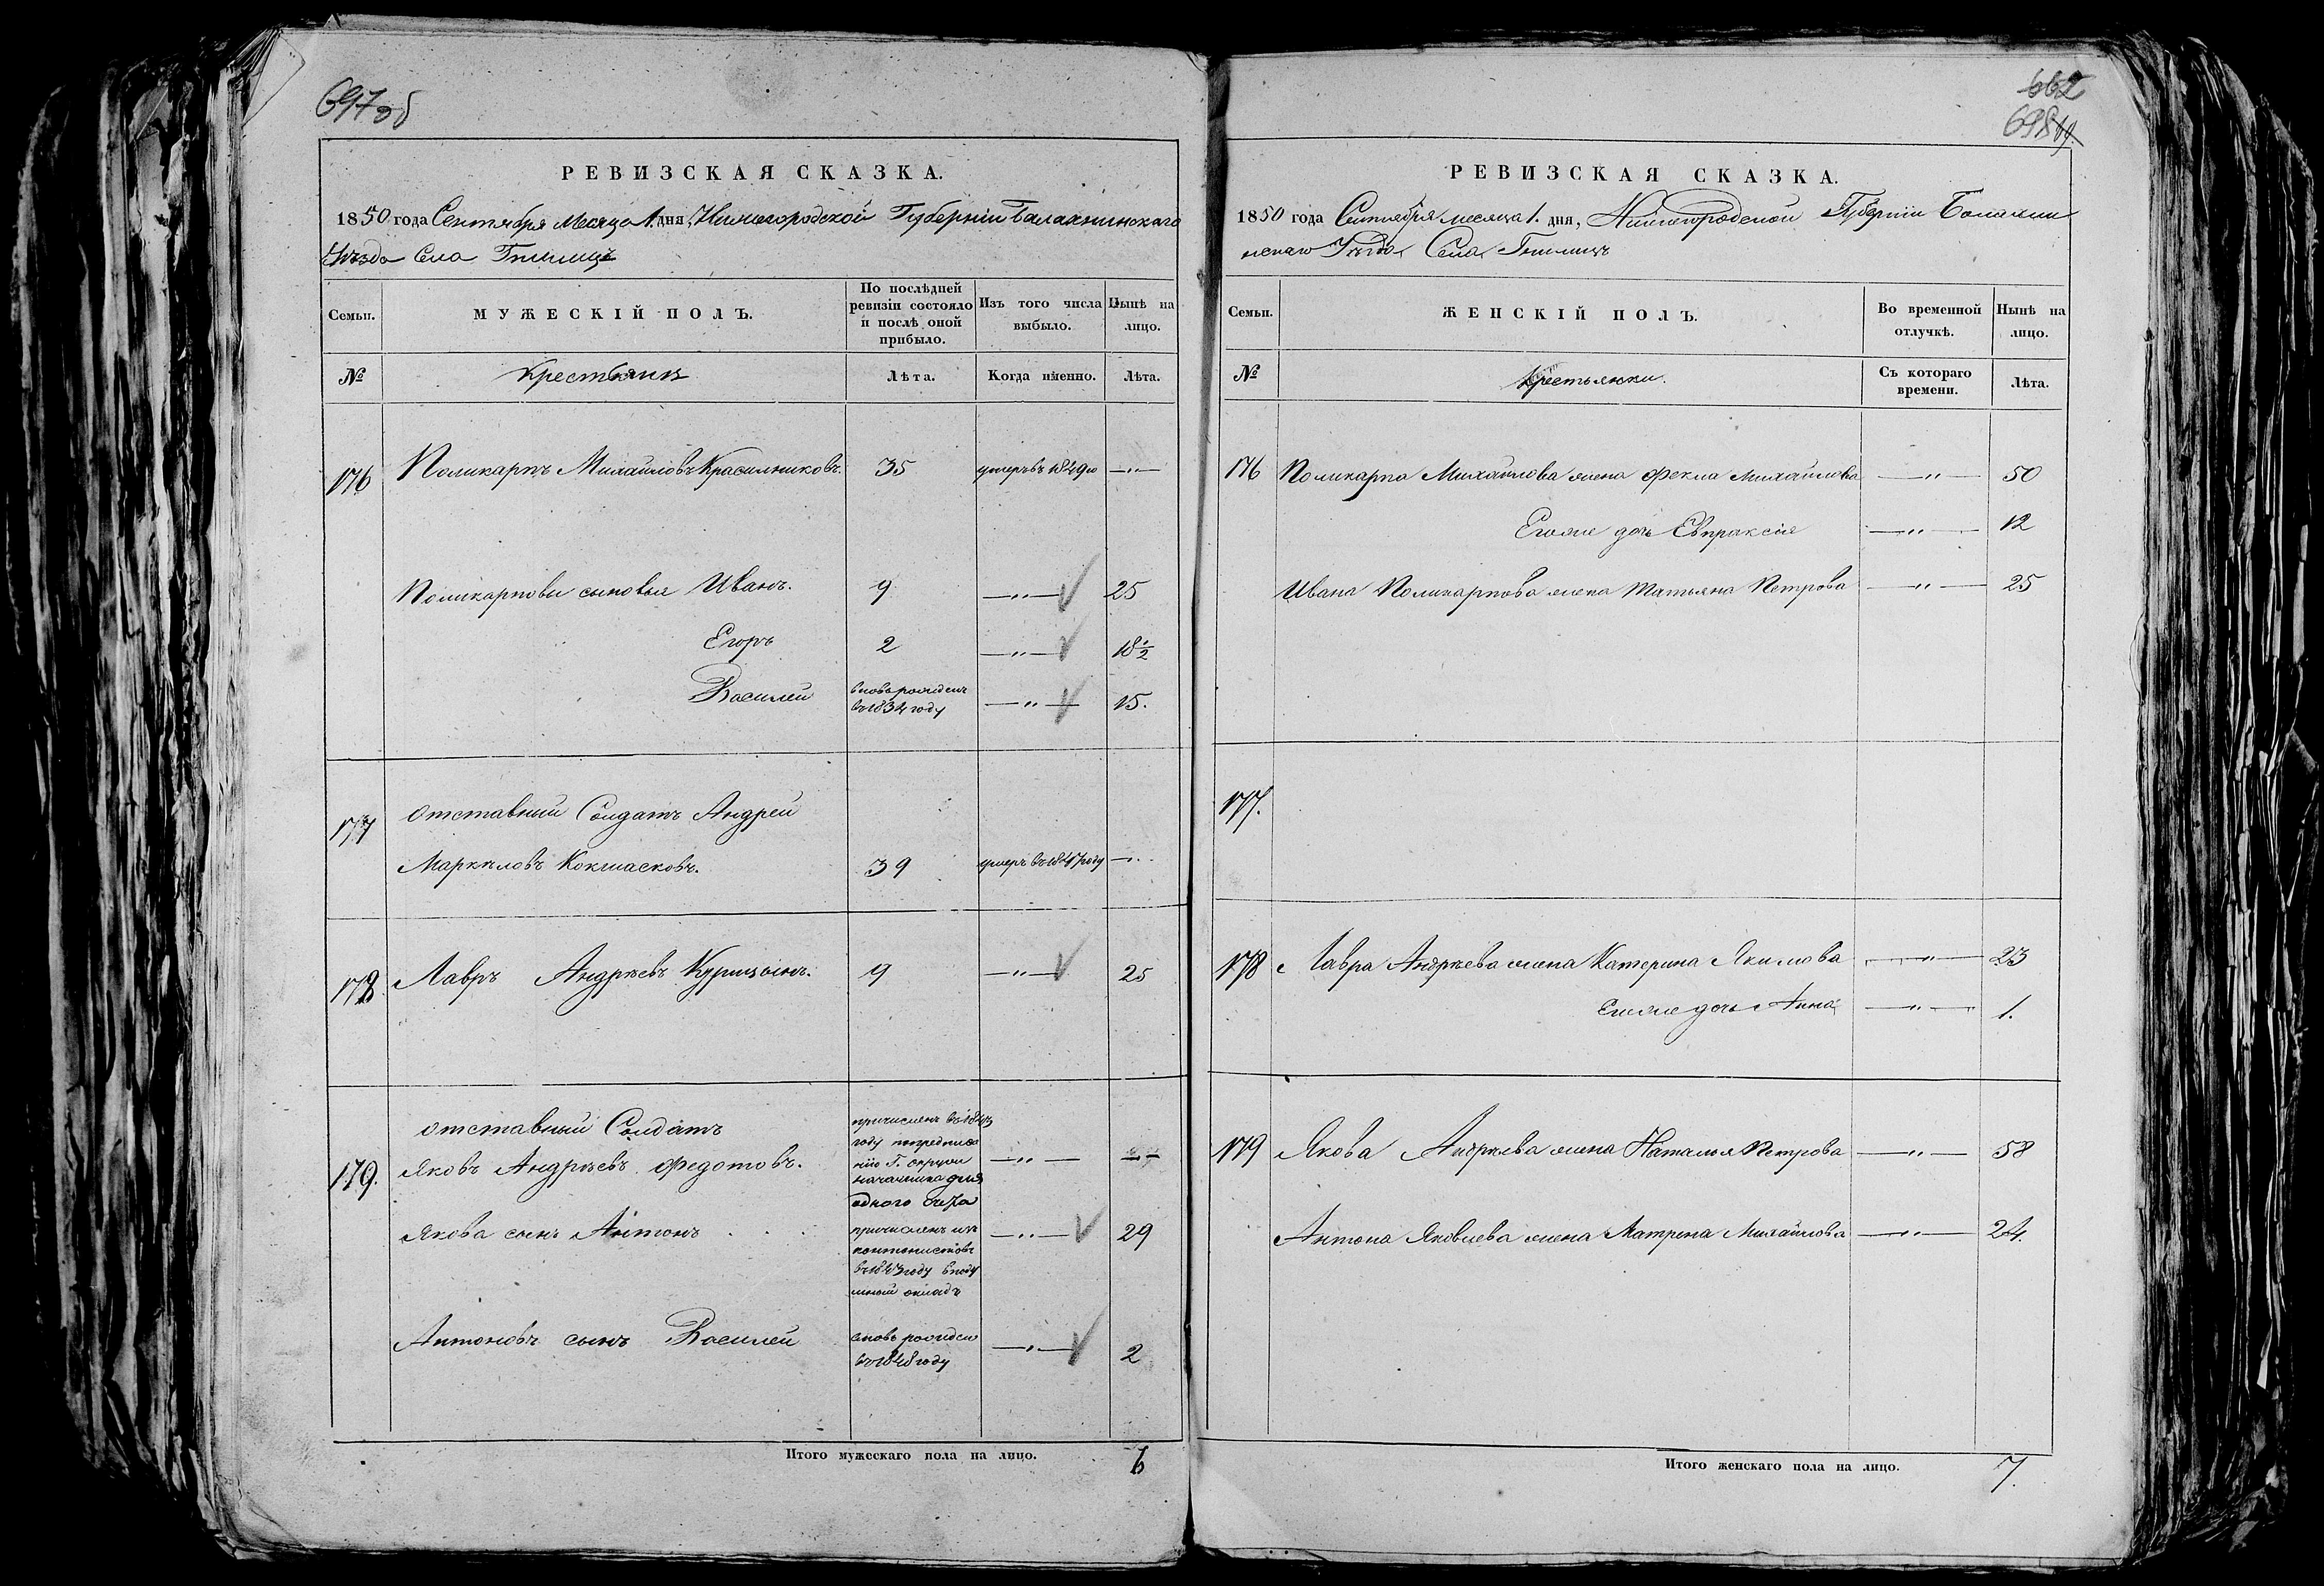 697об
РЕВИЗСКАЯ СКАЗКА.
1850 года Сентября Месяца 1. дня, Нижегородской Губерніи Балахнинскаго
Уѣзда Села Гнилицъ
Семьи.
МУЖЕСКІЙ ПОЛЪ.
По послѣдней
ревизіи состояло
и послѣ оной
прибыло.
Изъ того числа
выбыло.
Нынѣ на
лицо.
№
Крестьянъ
Лѣта.
Когда именно.
Лѣта.
176 Поликарпъ Михайловъ Красильниковъ. 35 умеръ въ 1849го —"—
Поликарповы сыновья Иванъ. 9 —"— √ 25
Егоръ 2 —"— √ 18 1/2
Василей
вновь рожденъ
въ 1834 году
—"— √ 15.
177
отставный Солдатъ Андрей
Маркѣловъ 39 умеръ въ 1847 году —"—
178. Лавръ Андрѣевъ Курицынъ. 9 —"— √ 25
179.
отставный Солдатъ
Яковъ Андрѣевъ Федотовъ.
причисленъ въ
году по
нію Г.
начальника для
одного счета
—"— —"—
Якова сынъ Антонъ
причисленъ изъ
кантонистовъ
въ 1843 году въ поду
шный окладъ
—"— √ 29
Антоновъ сынъ Василей
вновь рожден
въ 1848 году
—"— √ 2
Итого мужескаго пола на лицо. 6
662
698
РЕВИЗСКАЯ СКАЗКА.
1850 года Сентября месяца 1. дня, Нижегородской Губерніи Балахни
нскаго Уѣзда Села Гнилицъ
Семьи.
ЖЕНСКІЙ ПОЛЪ.
Во временной
отлучкѣ.
Нынѣ на
лицо.
№
Крестьянки.
Съ котораго
времени.
Лѣта.
176 Поликарпа Михайлова жена Фекла Михайлова —"— 50
Егоже дочь Евпраксія —"— 12
Ивана Поликарпова жена Татьяна Петрова —"— 25
177.
178 Лавра Андрѣева жена Катерина Якимова —"— 23
Егоже дочь Анна —"— 1.
179 Якова Андрѣева жена Наталья Петрова —"— 58
Антона Яковлева жена Матрена Михайлова —"— 24.
Итого женскаго пола на лицо. 7.